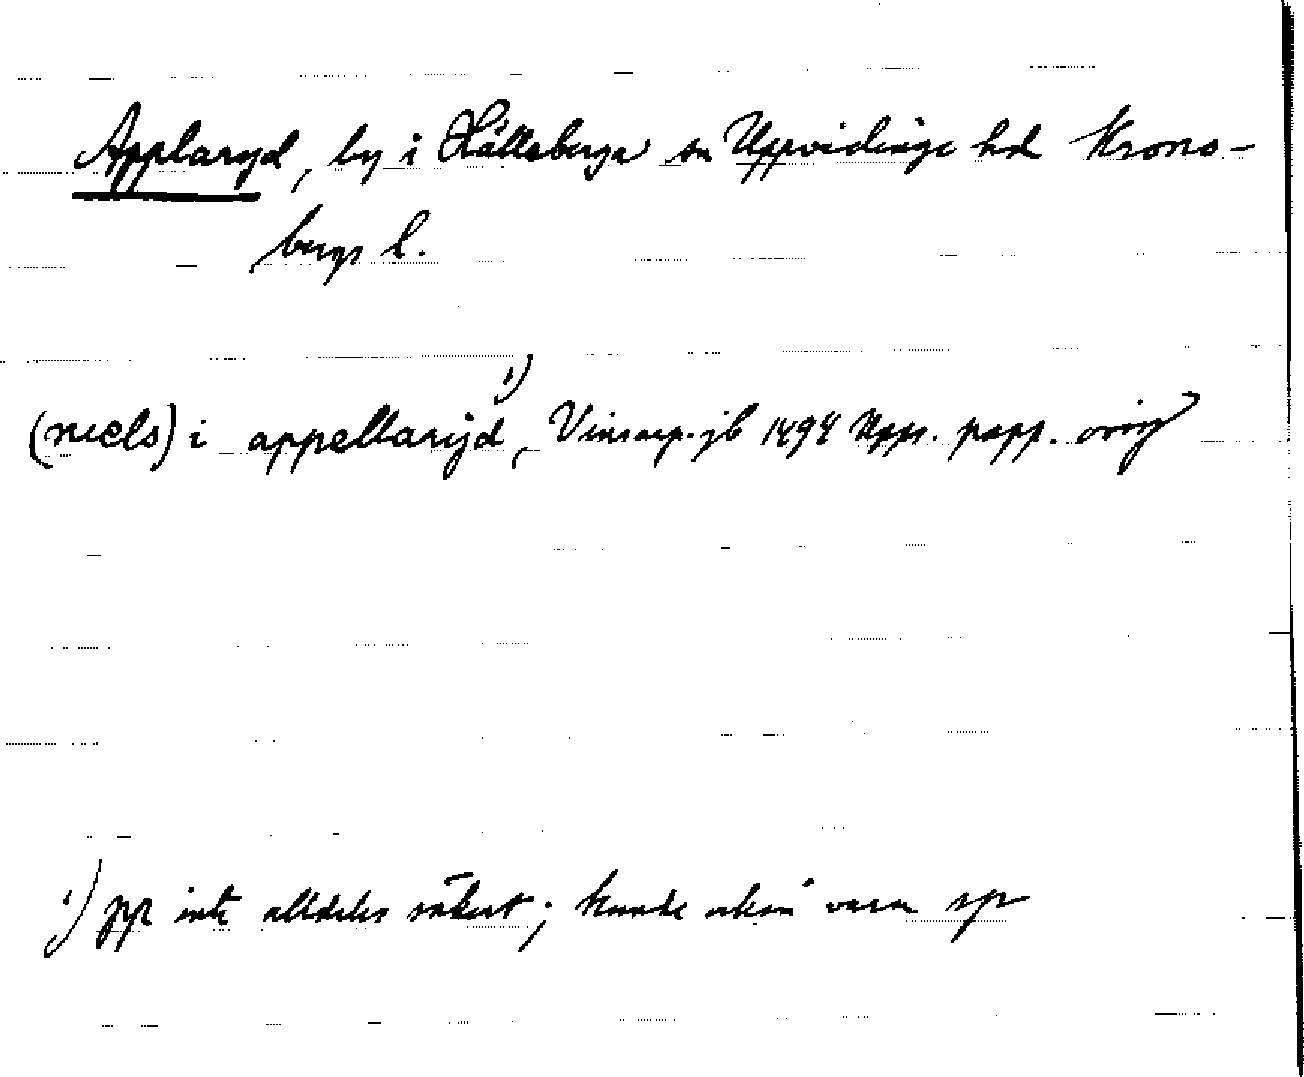 Applaryd, by i Hälleberga sn Uppvidinge hd Krono-
bergs l.
(niels) i appellarijd ¹), Vinsarp. jb 1494 Upps. papp. orig
¹) pp inte alldeles säkert; kunde också vara sp